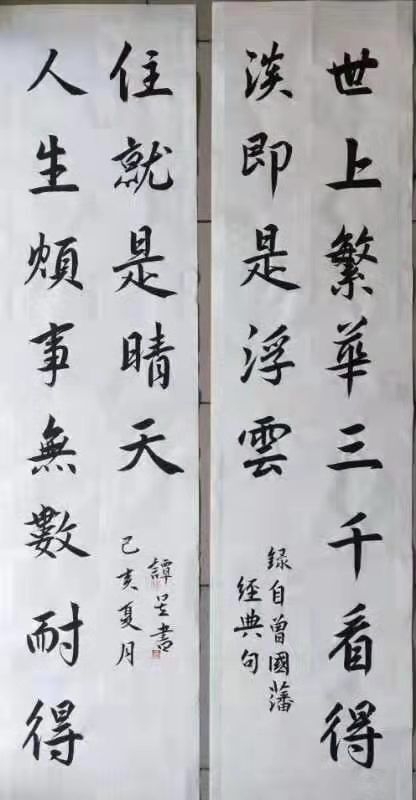 世上繁華三千看得
淡即是浮雲
録自曾國藩
經典句
人生煩事無數耐得
住就是晴天
己亥夏月
譚書